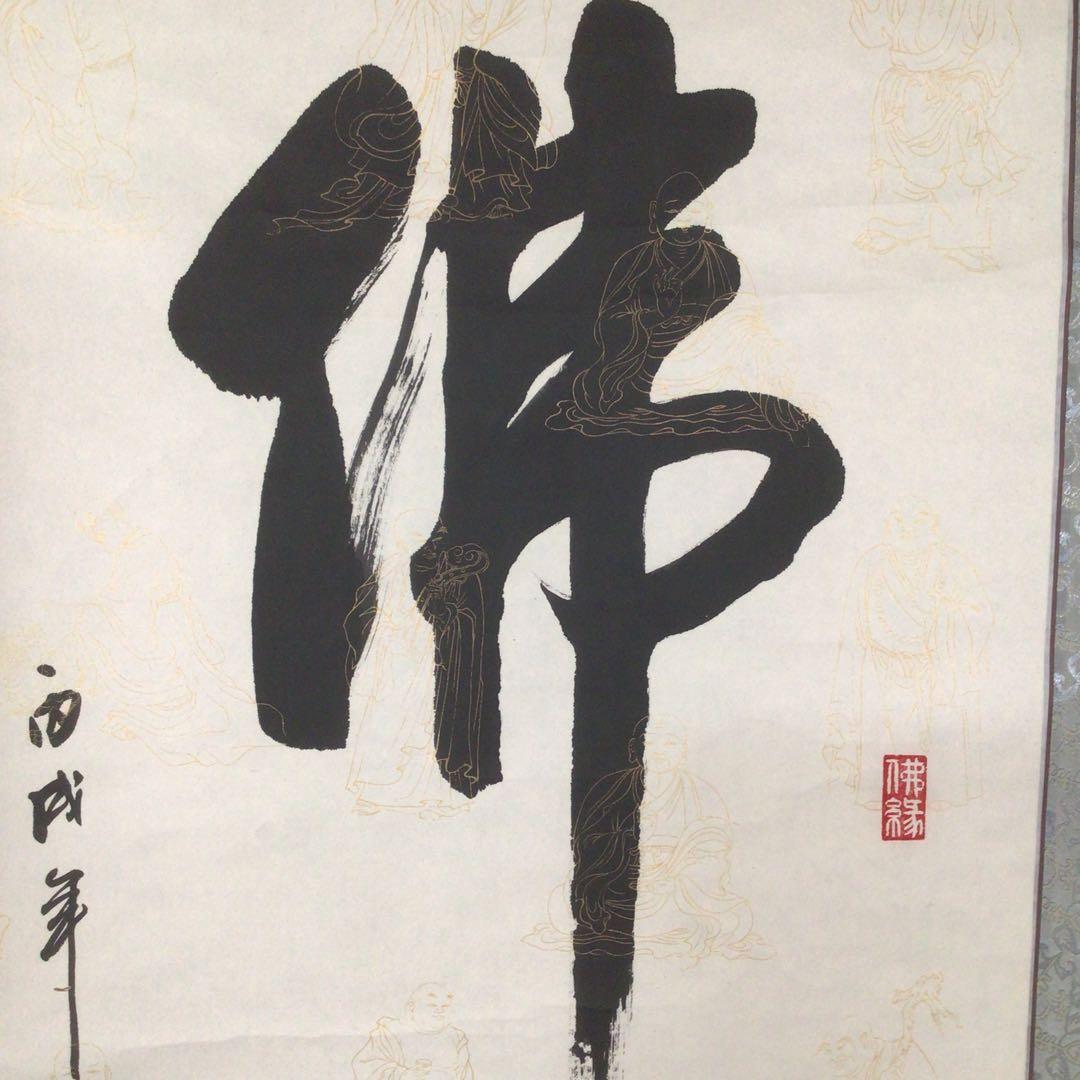 佛
丙戌年
佛緣